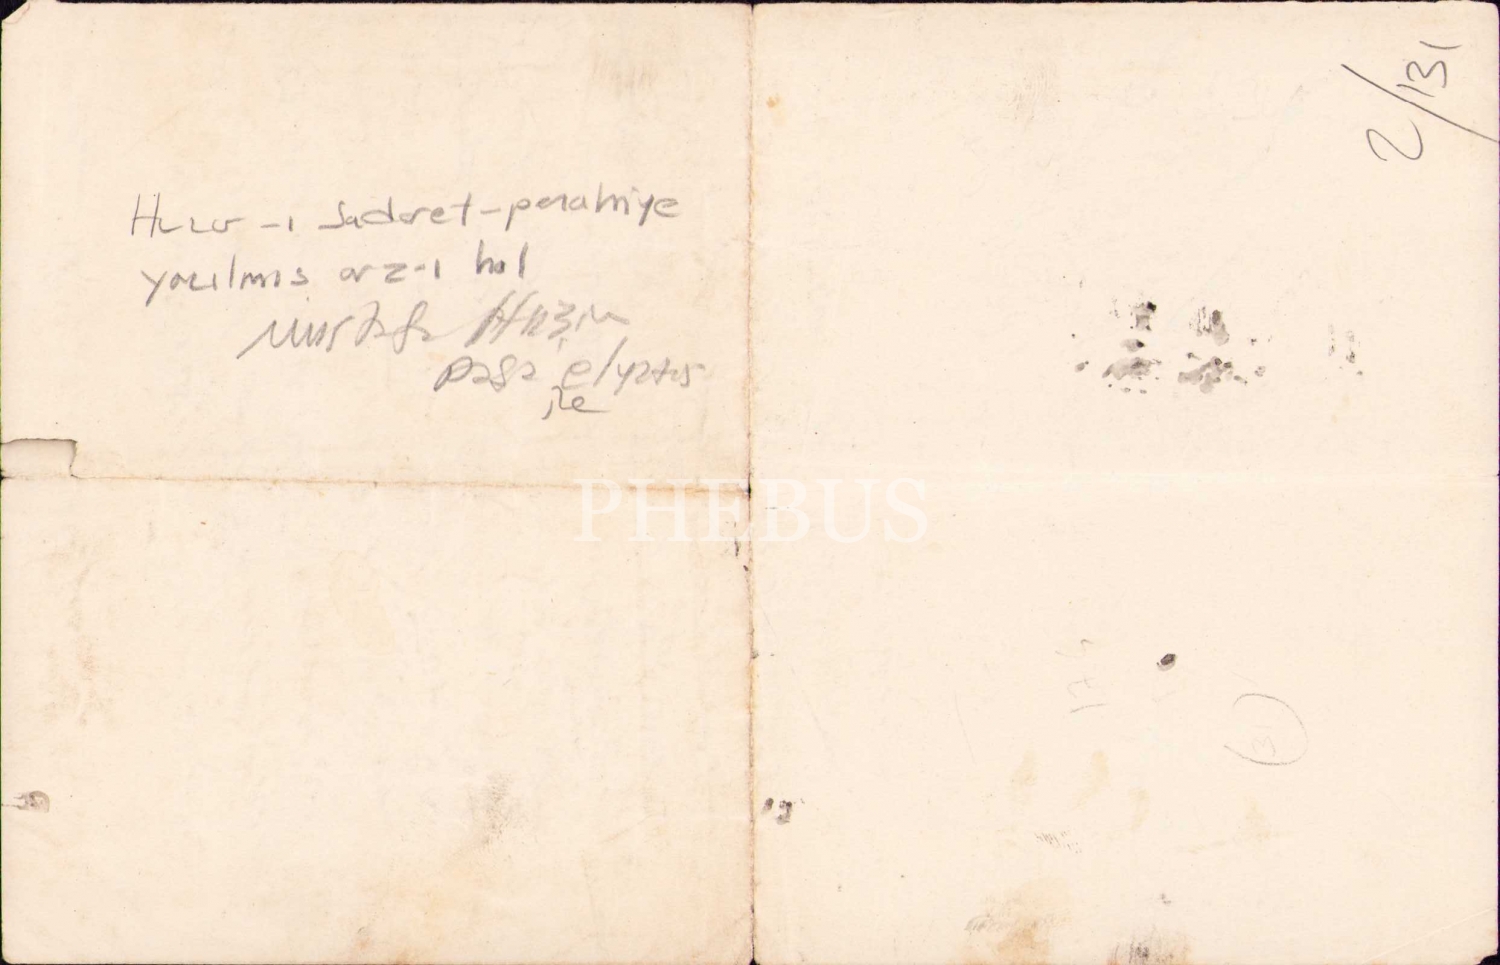 Huzur-ı Sadaret-penahiye
yazılmış arz-ı hal
Mustafa Hazım
Paşa elyazısı
ile
2/131
PHEBUS
31